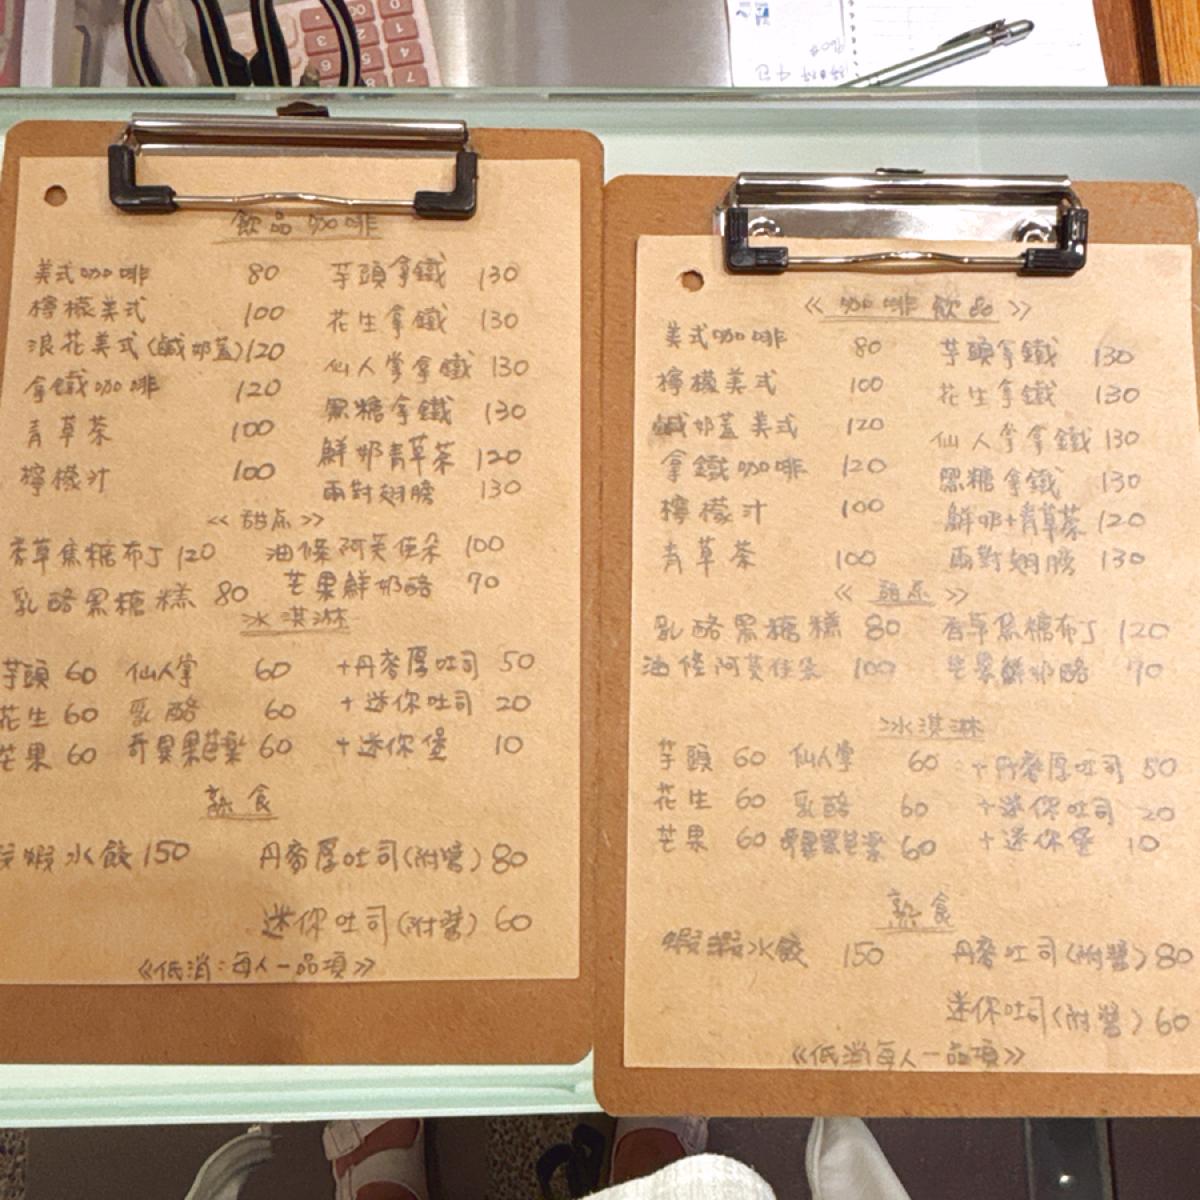 飲品咖啡
美式咖啡 80 芋頭拿鐵 130
檸檬美式 100 花生拿鐵 130
浪花美式(鹹奶蓋)120 仙人掌拿鐵 130
拿鐵咖啡 120 黑糖拿鐵 130
青草茶 100 鮮奶青草茶 120
檸檬汁 100 兩對翅膀 130
《甜点》
香草焦糖布丁 120 油條阿芙佳朵 100
乳酪黑糖糕 80 芒果鮮奶酪 70
冰淇淋
芋頭 60 仙人掌 60 +丹麥厚吐司 50
花生 60 乳酪 60 +迷你吐司 20
芒果 60 奇異果芭樂 60 +迷你堡 10
熟食
蝦水餃 150 丹麥厚吐司(附醬) 80
迷你吐司(附醬) 60
《低消:每人一品項》
《咖啡飲品》
美式咖啡 80 芋頭拿鐵 130
檸檬美式 100 花生拿鐵 130
鹹奶蓋美式 120 仙人掌拿鐵 130
拿鐵咖啡 120 黑糖拿鐵 130
檸檬汁 100 鮮奶+青草茶 120
青草茶 100 兩對翅膀 130
《甜点》
乳酪黑糖糕 80 香草焦糖布丁 120
油條阿芙佳朵 100 芒果鮮奶酪 70
冰淇淋
芋頭 60 仙人掌 60 +丹麥厚吐司 50
花生 60 乳酪 60 +迷你吐司 20
芒果 60 奇異果芭樂 60 +迷你堡 10
熟食
蝦蝦水餃 150 丹麥吐司(附醬) 80
迷你吐司(附醬) 60
《低消每人一品項》